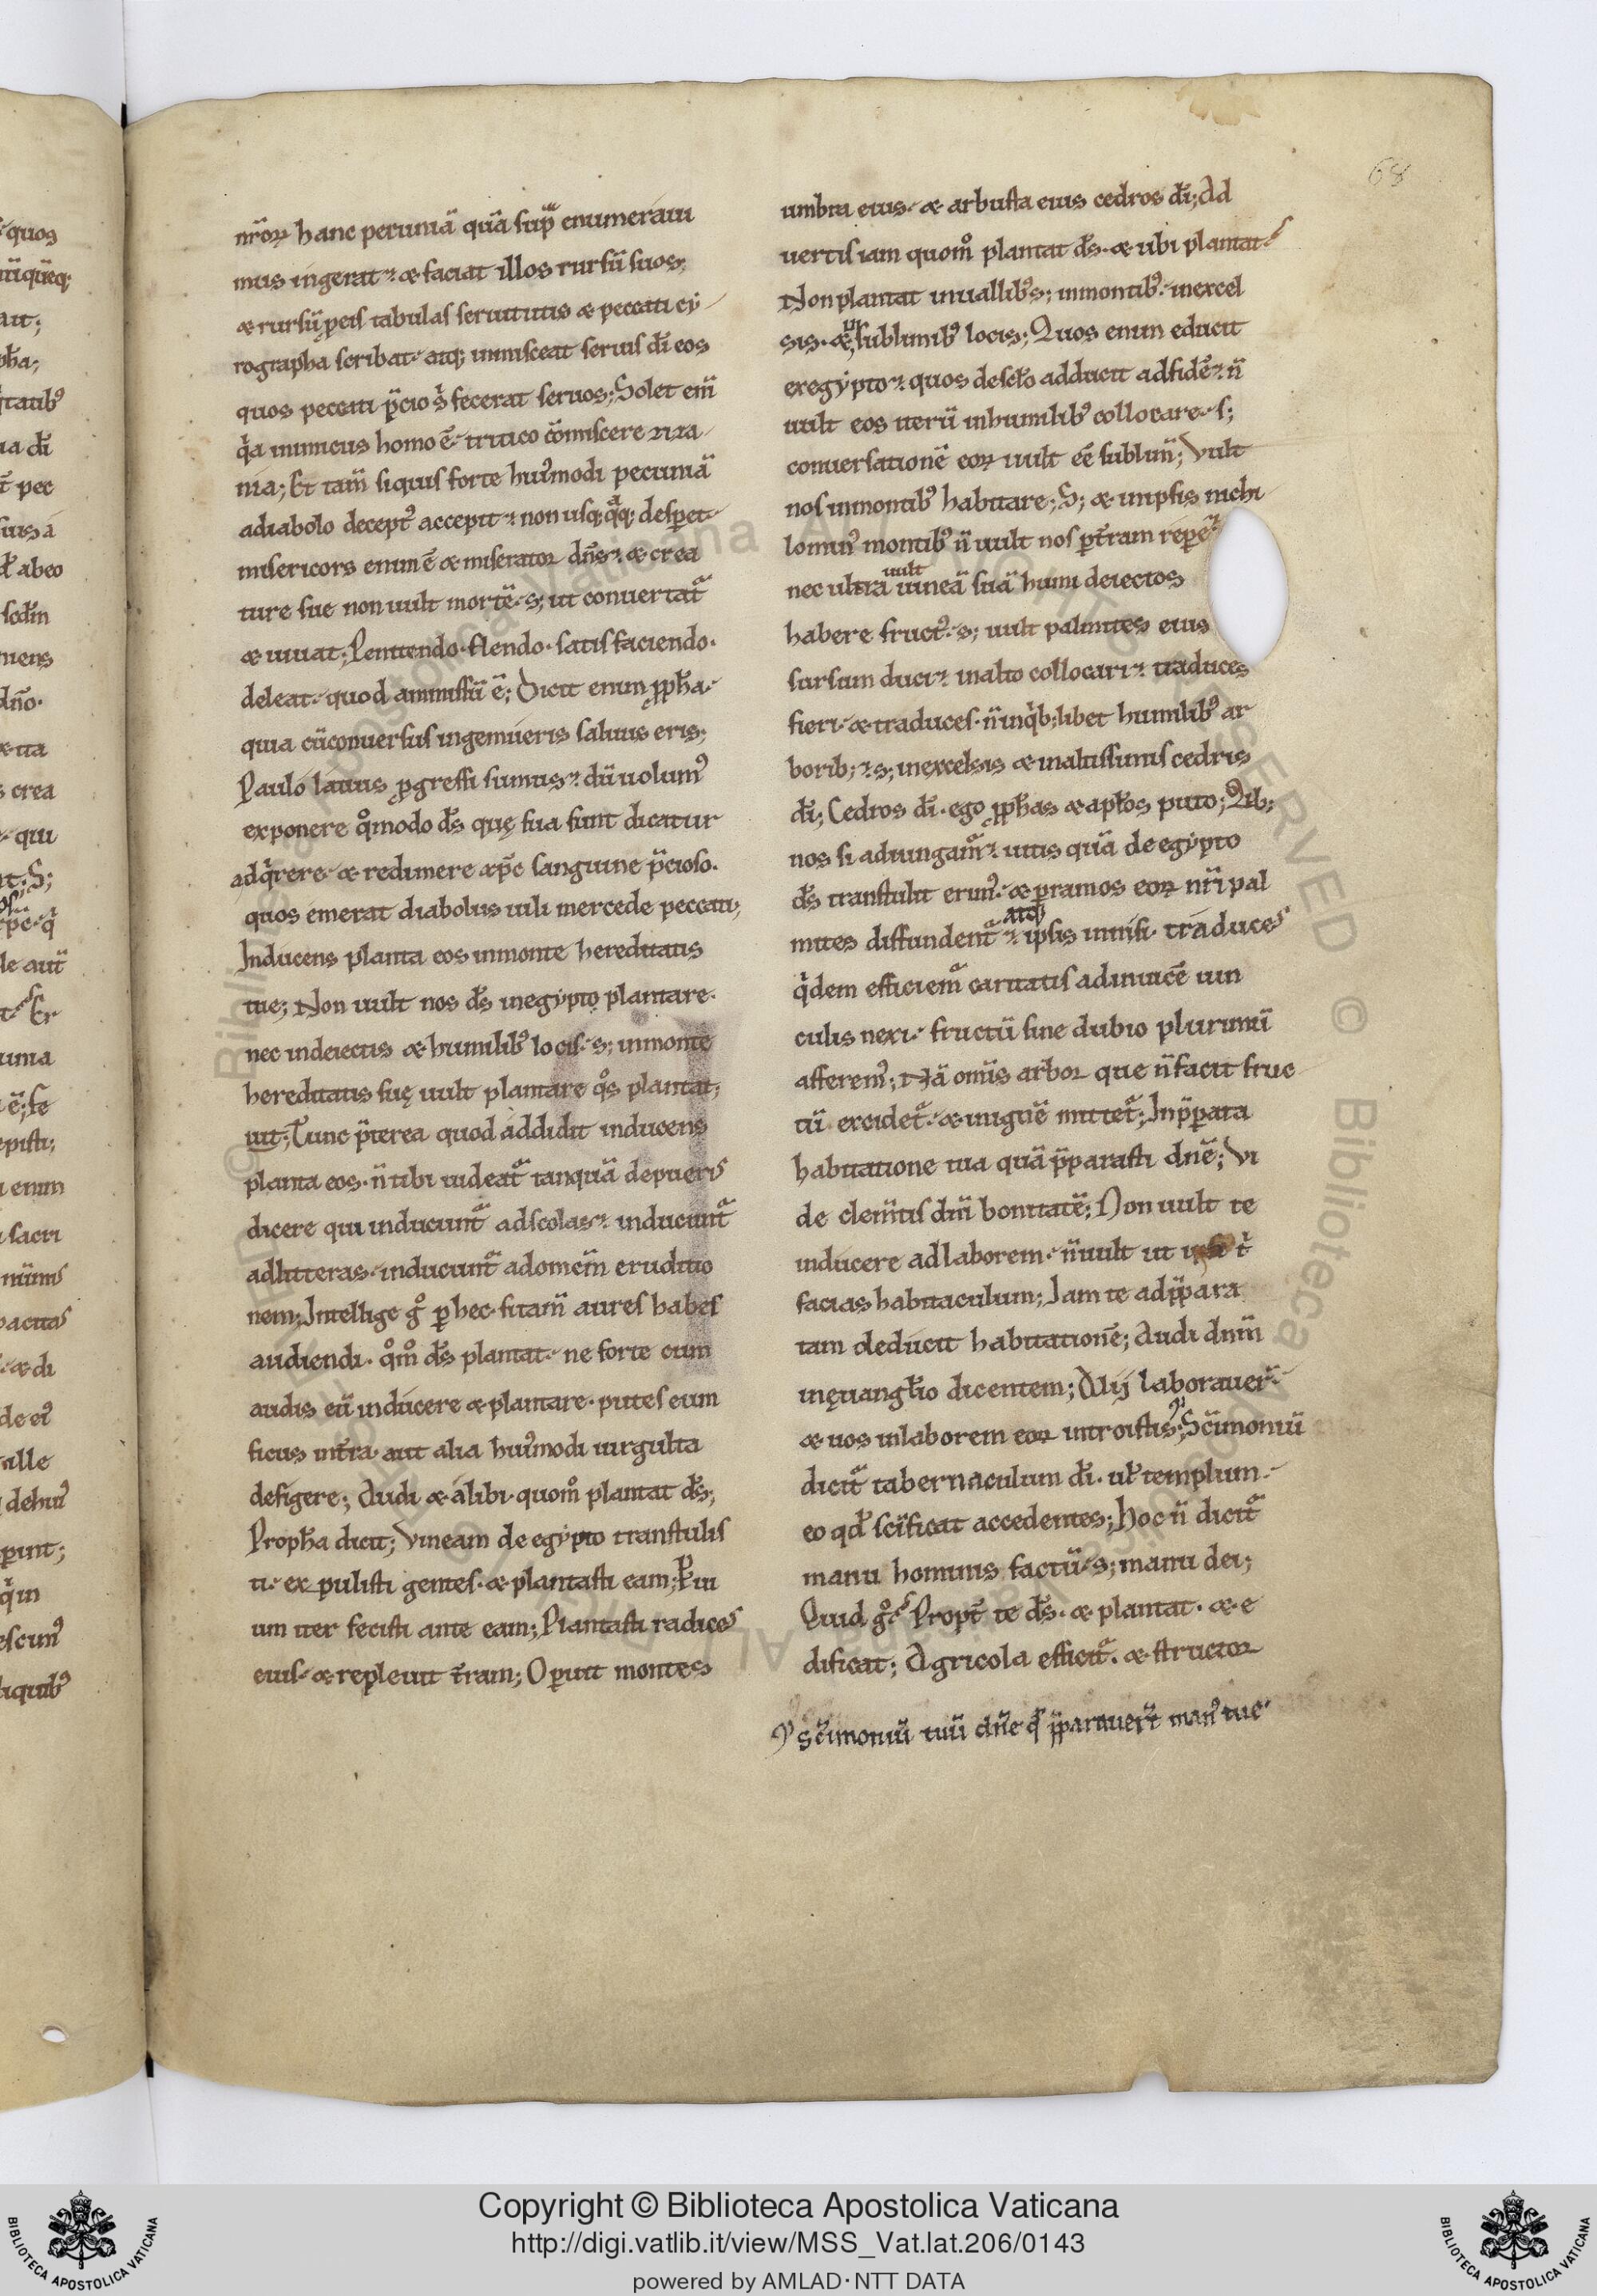 68
nr̃oꝝ hanc pecuniã quã sup̃ enumeraui
mus ingerat· & faciat illos rursũ suos;
& rursũ p eis tabulas seruitutis & peccati cy
rographa scribat· atq; inmisceat seruis dĩ eos
quos peccati p̃cio s' fecerat seruos; Solet enĩ
q'a inimicus homo ẽ· tritico cõmiscere ziza
nia; Et tam̃ siquis forte hui'modi pecuniã
adiabolo decept' accepit· non usq;q̃q; desꝑet·
misericors enim ẽ & miserator dñs· & crea
ture sue non uult mortẽ· s; ut conuertat̃
& uiuat; Penitendo· flendo· satisfaciendo·
deleat· quod ammissũ ẽ; Dicit enim ꝓpħa·
quia cũ conuersus ingemueris saluus eris;
Paulo latius ꝓgressi sumus· dũ uolum'
exponere q̊modo ds̃ quę sua sunt dicatur
adq'rere· & redimere xp̃c sanguine p̃cioso·
quos emerat diabolus uili mercede peccati;
Inducens planta eos inmonte hereditatis
tue; Non uult nos ds̃ inegypto plantare·
nec indeiectis & humilib' locis· s; inmonte
hereditatis suę uult plantare q̊s plantat;
uit; Tunc p̃terea quod addidit inducens
planta eos· ñ tibi uideat̃ tanquã depueris
dicere qui inducunt̃ adscolas· inducunt̃
adlitteras· inducunt̃ adomem̃ eruditio
nem; Intellige g̊ ꝑ hec· si tam̃ aures habes
audiendi· q̊m̊ ds̃ plantat· ne forte cum
audis eũ inducere & plantare· putes eum
ficus int̃ra· aut alia hui'modi uirgulta
defigere; Audi & alibi· quom̊ plantat ds̃;
Propħa dicit; Vineam de egypto transtulis
ti· expulisti gentes· & plantasti eam; P'ui
um iter fecisti ante eam; Plantasti radices
eius· & repleuit t̃ram; Operuit montes
umbra eius· & arbusta eius cedros dĩ; Ad
uertis iam quom̊ plantat ds̃· & ubi plantat·
Non plantat inuallib's; inmontib'· inexcel
sis· & sublimib' locis; Quos enim educit
exegypto· quos descło adducit adfidẽ· ñ
uult eos iterũ inhumilib' collocare· s;
conuersationẽ eoꝝ uult eẽ sublim̃; Vult
nos inmontib' habitare; S; & inipsis nichi
lomin' montib' ñ uult nos ꝑt̃ram reꝑe
nec ultra uult uineã suã humi deiectos
habere fruct'· s; uult palmites eius
sursum duci· inalto collocari· traduces
fieri· & traduces· ñ inq'b;libet humilib' ar
borib;· s; inexcelsis & inaltissimis cedris
dĩ; Cedros dĩ· ego ꝓpħas & apłos puto; Qib;
nos si adiungam̃· uitis quã de egypto
ds̃ transtulit erim'· & ꝑ ramos eoꝝ nr̃i pal
mites diffundent̃ atq; ipsis innisi· traduces
q'dem efficiem̃ caritatis adinuicẽ uin
culis nexi· fructũ sine dubio plurimũ
afferem'; Nã om̃is arbor que ñ facit fruc
tũ excidet̃· & inignẽ mittet̃; In p̃parata
habitatione tua quã p̃parasti dñe; Vi
de clem̃tis dñi bonitatẽ; Non uult te
inducere adlaborem· ñ uult ut ipse t'
facias habitaculum; Iam te adp̃para
tam deducit habitationẽ; Audi dnm̃
inęuangłio dicentem; Alij laborauer̃·
& uos inlaborem eoꝝ introistis; Sc̃imoniũ
dicit̃ tabernaculum dĩ· uł templum·
eo qđ sc̃ificat accedentes; Hoc ñ dicit̃
manu hominis factũ· s; manu dei;
Quid g̊· Propt̃ te ds̃· & plantat· & e
dificat; Agricola efficit̃· & structor
sc̃imoniũ tuũ dñe q̃ p̃parauer̃t man' tue·
quos
crea
qui
pec
abeo
uma
enim
sacri
alle
Copyright © Biblioteca Apostolica Vaticana
http://digi.vatlib.it/view/MSS_Vat.lat.206/0143
powered by AMLAD·NTT DATA
BIBLIOTECA APOSTOLICA VATICANA
BIBLIOTECA APOSTOLICA VATICANA